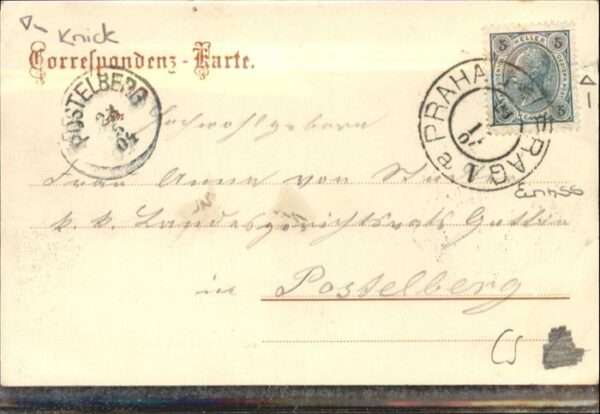 Knick
Correspondenz-Karte.
5 HELLER 5
5 5
POSTELBERG
04
PRAHA
PRAG
1
Hochwohlgeboren
Frau Anna von
k. k. Landesgerichtsrats Gattin
in Postelberg
CS